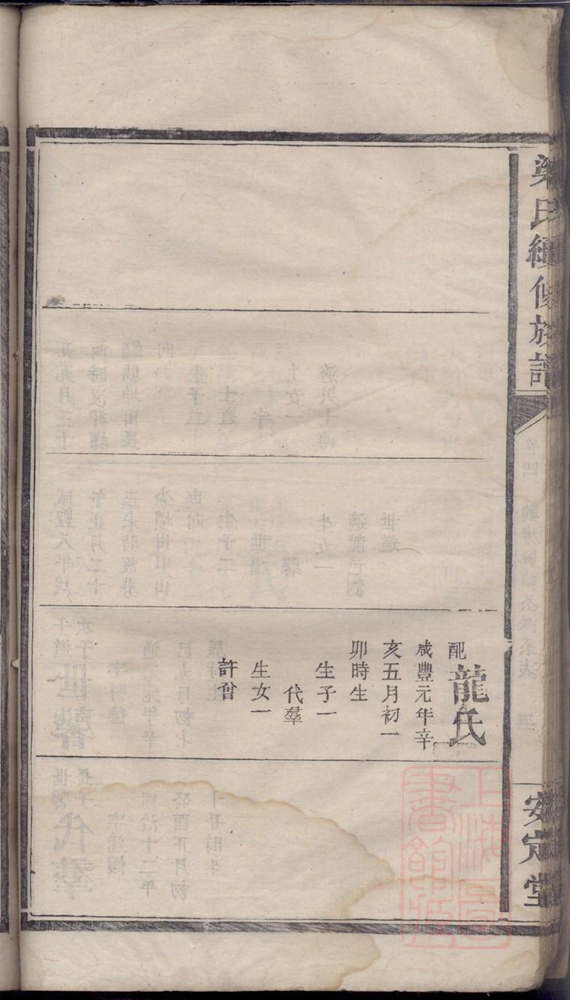 梁氏續修族譜
安定堂
配龍氏
咸豐元年辛
亥五月初一
卯時生
生子一
代羣
生女一
許曾
上海圖書館藏